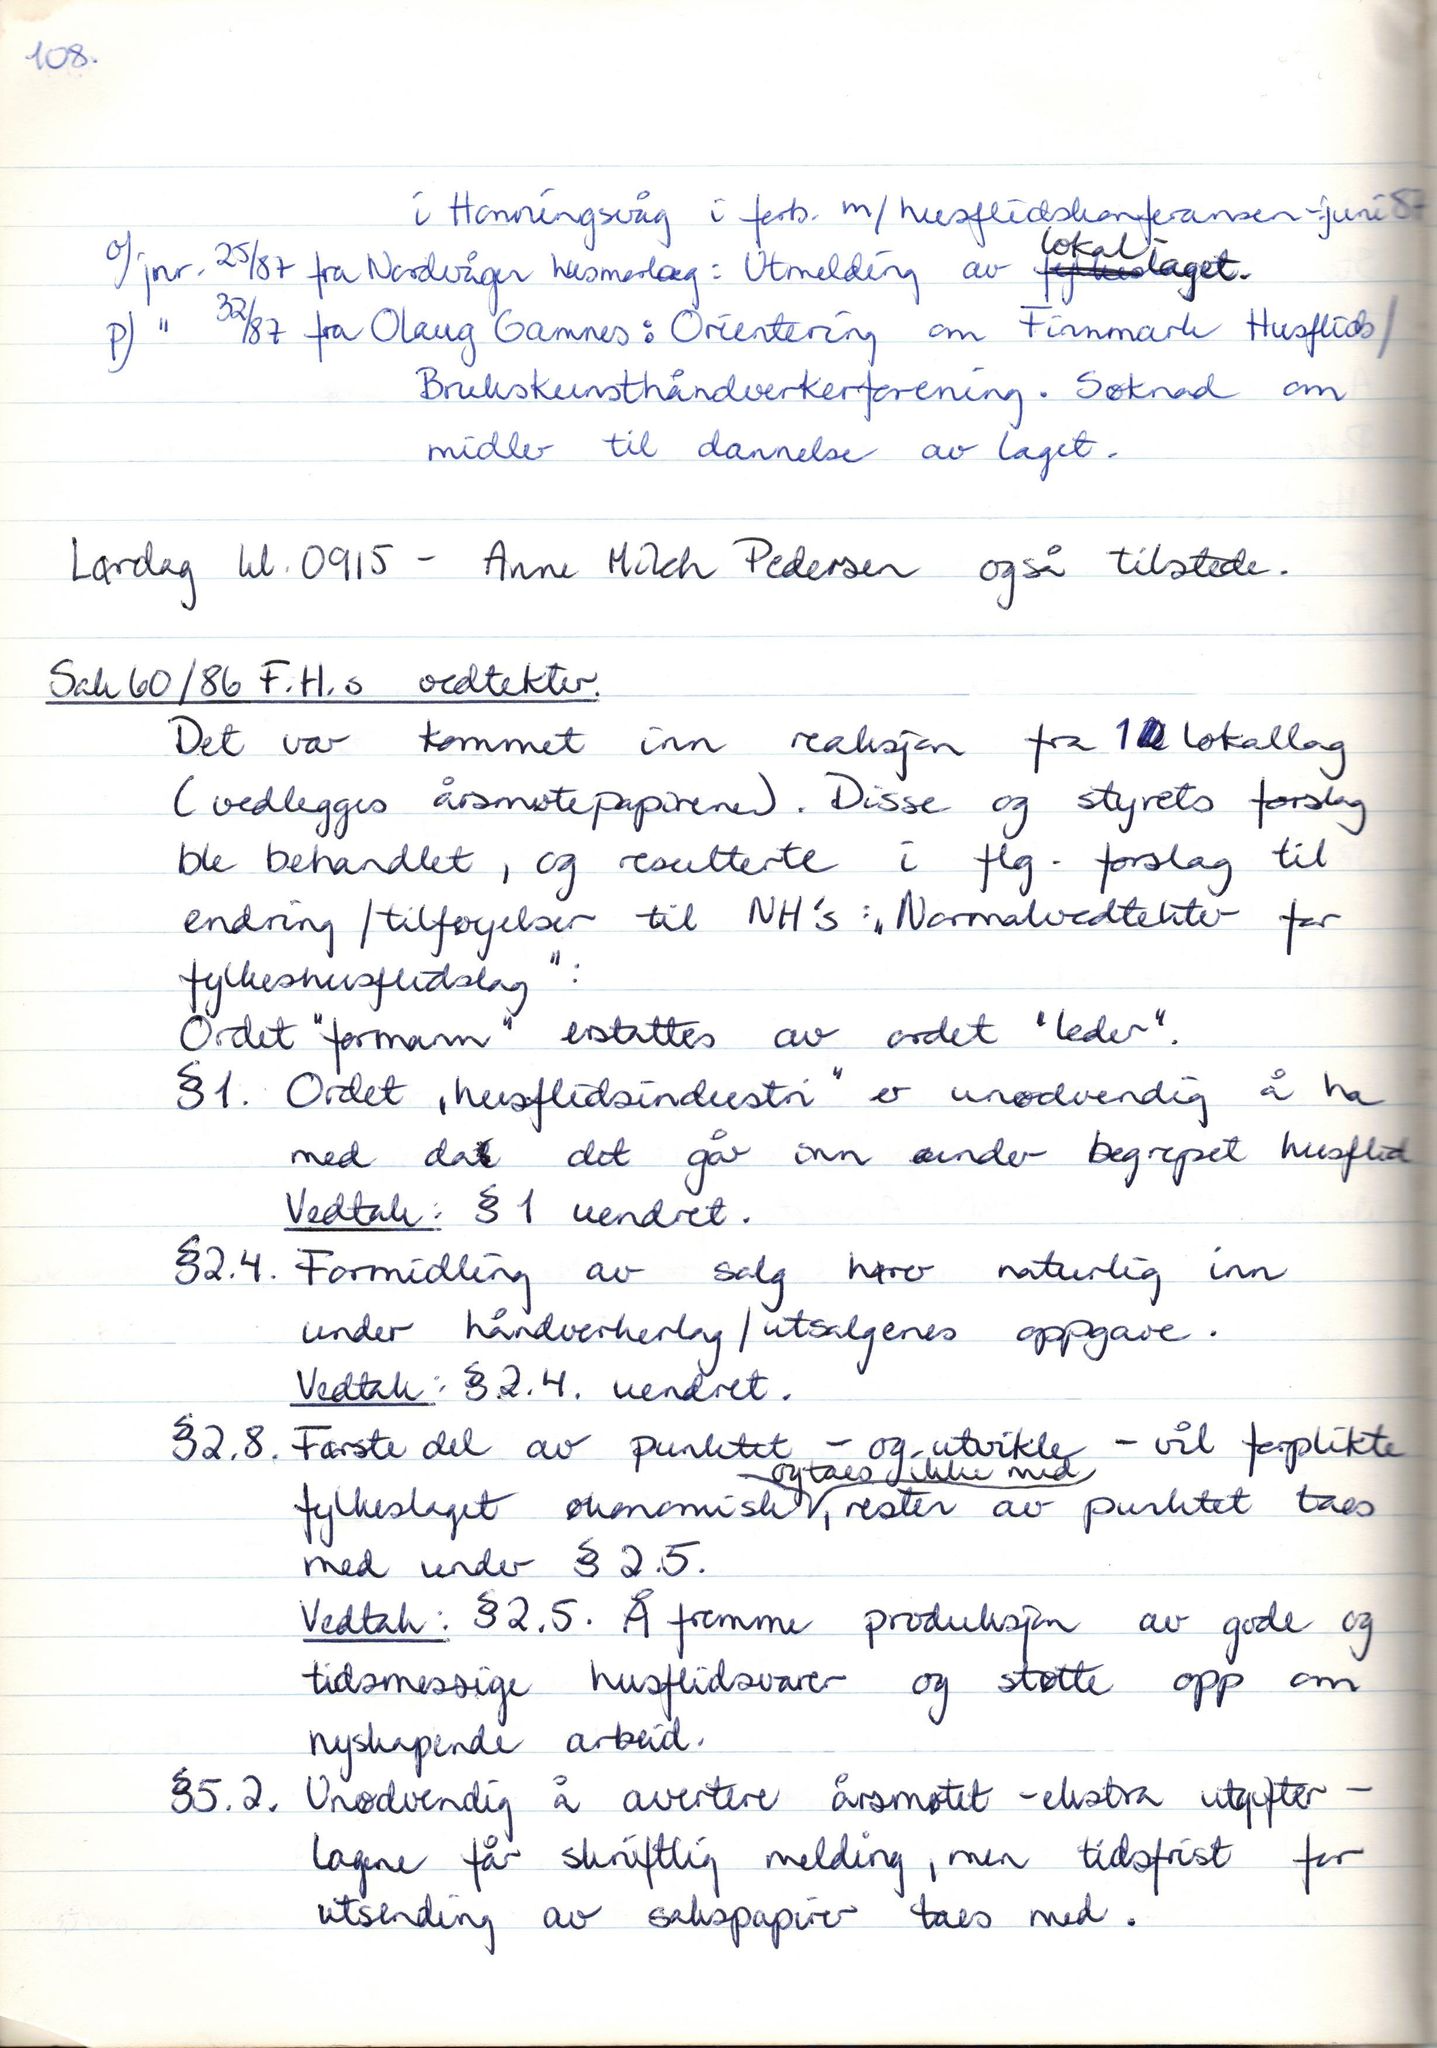 108.
i Honningsvåg i forb. m/husflidskonferansen - juni 87
o) jnr. 25/87 fra Nordvågen husmorlag: Utmelding av lokallaget.
p) " 32/87 fra Olaug Gamnes: Orientering om Finnmark Husflids/
Brukskunsthåndverkerforening. Søknad om
midler til dannelse av laget.
Lørdag kl. 0915 - Anne Milch Pedersen også tilstede.
Sak 60/86 F.H.s vedtekter.
Det var kommet inn reaksjon fra 1 lokallag
(vedlegges årsmøtepapirene). Disse og styrets forslag
ble behandlet, og resulterte i flg. forslag til
endring/tilføyelser til NH's: „Normalvedtekter for
fylkeshusflidslag":
Ordet "formann" erstattes av ordet "leder".
§1. Ordet „husflidsindustri" er unødvendig å ha
med da det går inn under begrepet husflid
Vedtak: §1 uendret.
§2.4. Formidling av salg hører naturlig inn
under håndverkerlag/utsalgenes oppgave.
Vedtak: §2.4. uendret.
§2.8. Første del av punktet - og utvikle - vil forplikte
og taes ikke med
fylkeslaget økonomisk, resten av punktet taes
med under §2.5.
Vedtak: §2.5. Å fremme produksjon av gode og
tidsmessige husflidsvarer og støtte opp om
nyskapende arbeid.
§5.2. Unødvendig å avertere årsmøtet - ekstra utgifter -
lagene får skriftlig melding, men tidsfrist for
utsending av sakspapirer taes med.